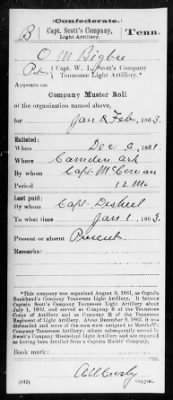 Confederate.
B Capt. Scott's Company, Light Artillery. Tenn.
O M Bigbee
Pvt, Capt. W. L. Scott's Company Tennessee Light Artillery.*
Appears on
Company Muster Roll
of the organization named above,
for Jan & Feb, 1863.
Enlisted:
When Dec 6, 1861.
Where Camden Ark
By whom Capt McCowan
Period 12 Mo
Last paid:
By whom Capt
To what time Jan 1, 1863.
Present or absent Present
Remarks:
*This company was organized August 9, 1861, as Captain
Bankhead's Company Tennessee Light Artillery. It became
Captain Scott's Company Tennessee Light Artillery about
July 1, 1862, and served as Company B of the Tennessee
Corps of Artillery and as Company B of the Tennessee
Regiment of Light Artillery. About December 9, 1863, it was
disbanded and were assigned to
Company Tennessee Light Artillery; subsequently served in
Company Mississippi Light Artillery and are reported
as having been detailed from Captain Scott's Company.
Book mark:
(642)
Copyist.